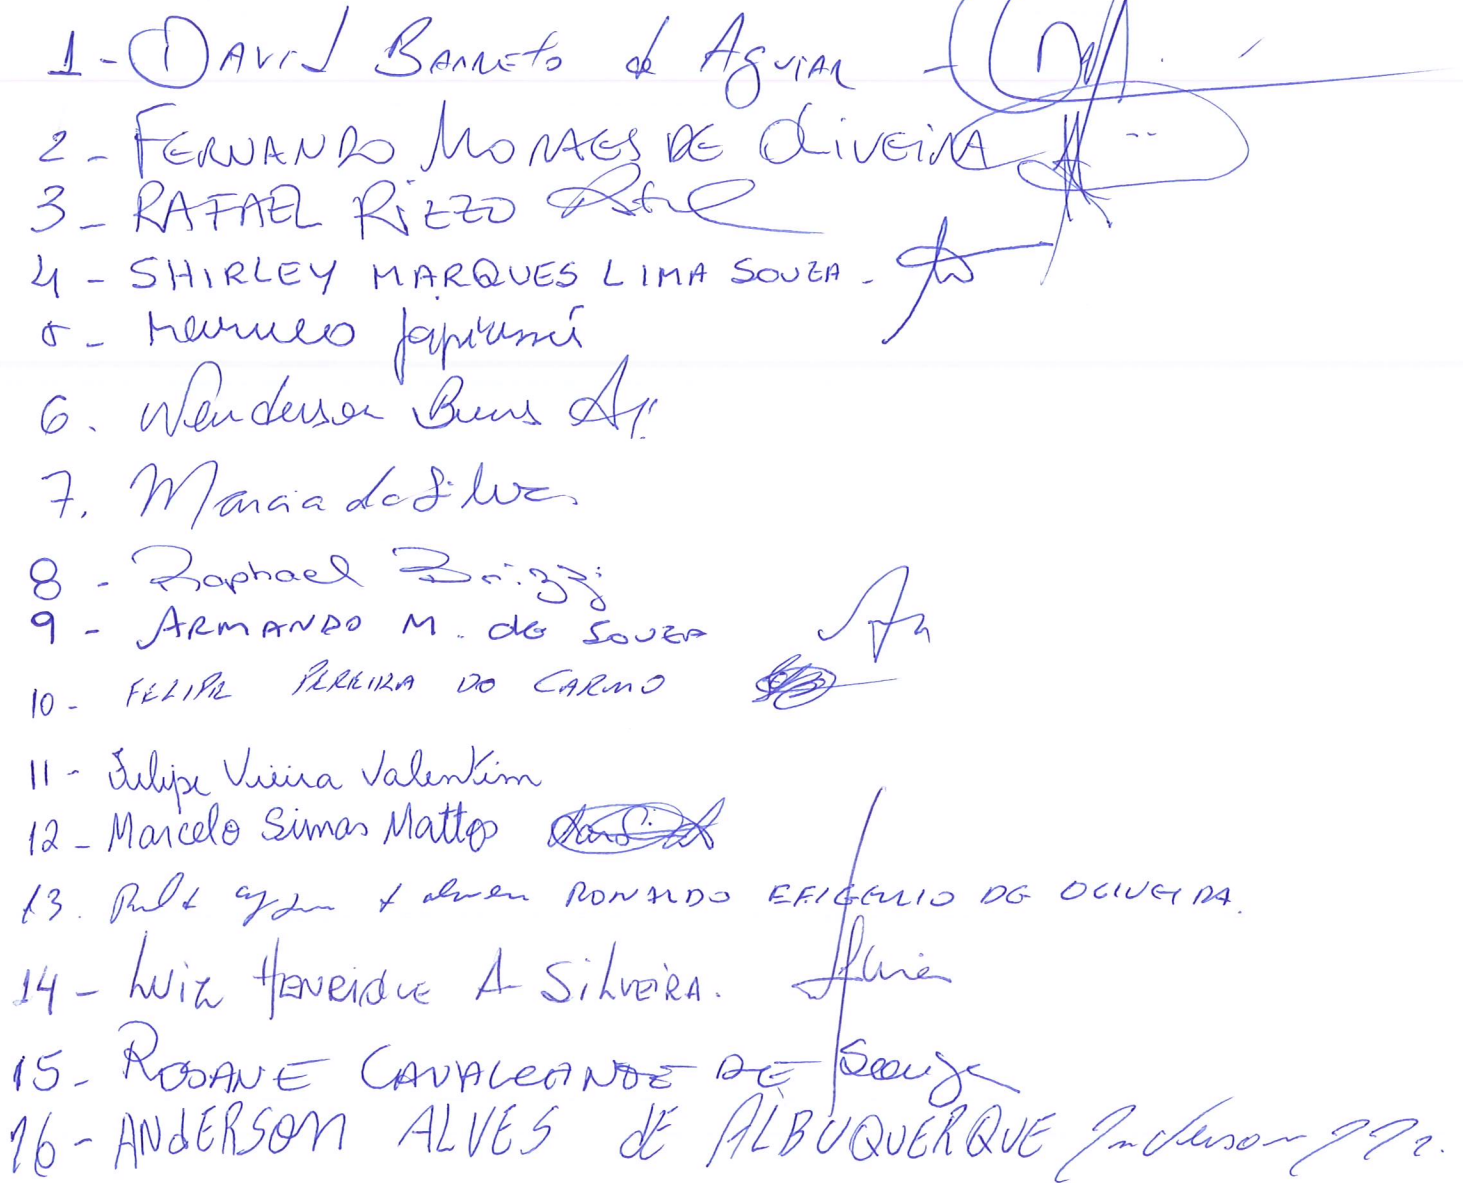 1 - David Barreto de Aguiar -
2 - FERNANDO MORAES DE OliVEiRA
3 - RAFAEL RIZZO
4 - SHIRLEY MARQUES LIMA SOUZA -
5 - Japiassú
6. Wenderson
7. Marcia da Silva
8 - Raphael Brizzi
9 - ARMANDO M. de SOUZA
10 - FELIPE PEREIRA DO CARMO
11 - Felipe Vieira Valentim
12 - Marcelo Simas Mattos
13. RONALDO EFIGENIO DE OLIVEIRA.
14 - Luiz HENRIQUE A SILVEIRA.
15 - ROSANE CAVALCANTE DE Souza
16 - ANdERSON ALVES dE ALBUQUERQUE Anderson